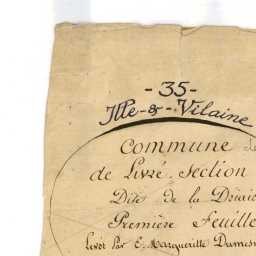 - 35 -
Ille-&-Vilaine
Commune de
de Livré. Section
Dite de la Douai
Première Feuille
Levée Par E. Margueritte Dumesn